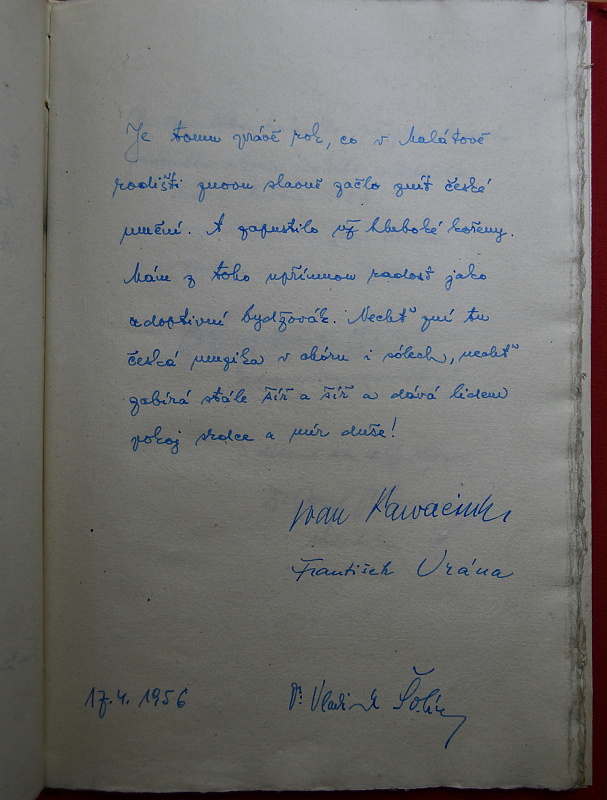 Je tomu právě rok, co v Malátově
rodišti znovu slavně začlo znít české
umění. A zapustilo už hluboké kořeny.
Mám z toho upřímnou radost jako
adoptivní bydžovák. Nechť zní tu
česká muzika v chóru i sólech, nechť
zabírá stále šíř a šíř a dává lidem
pokoj srdce a mír duše!
Ivan
František Vrána
17.4.1956 Dr Vladimír